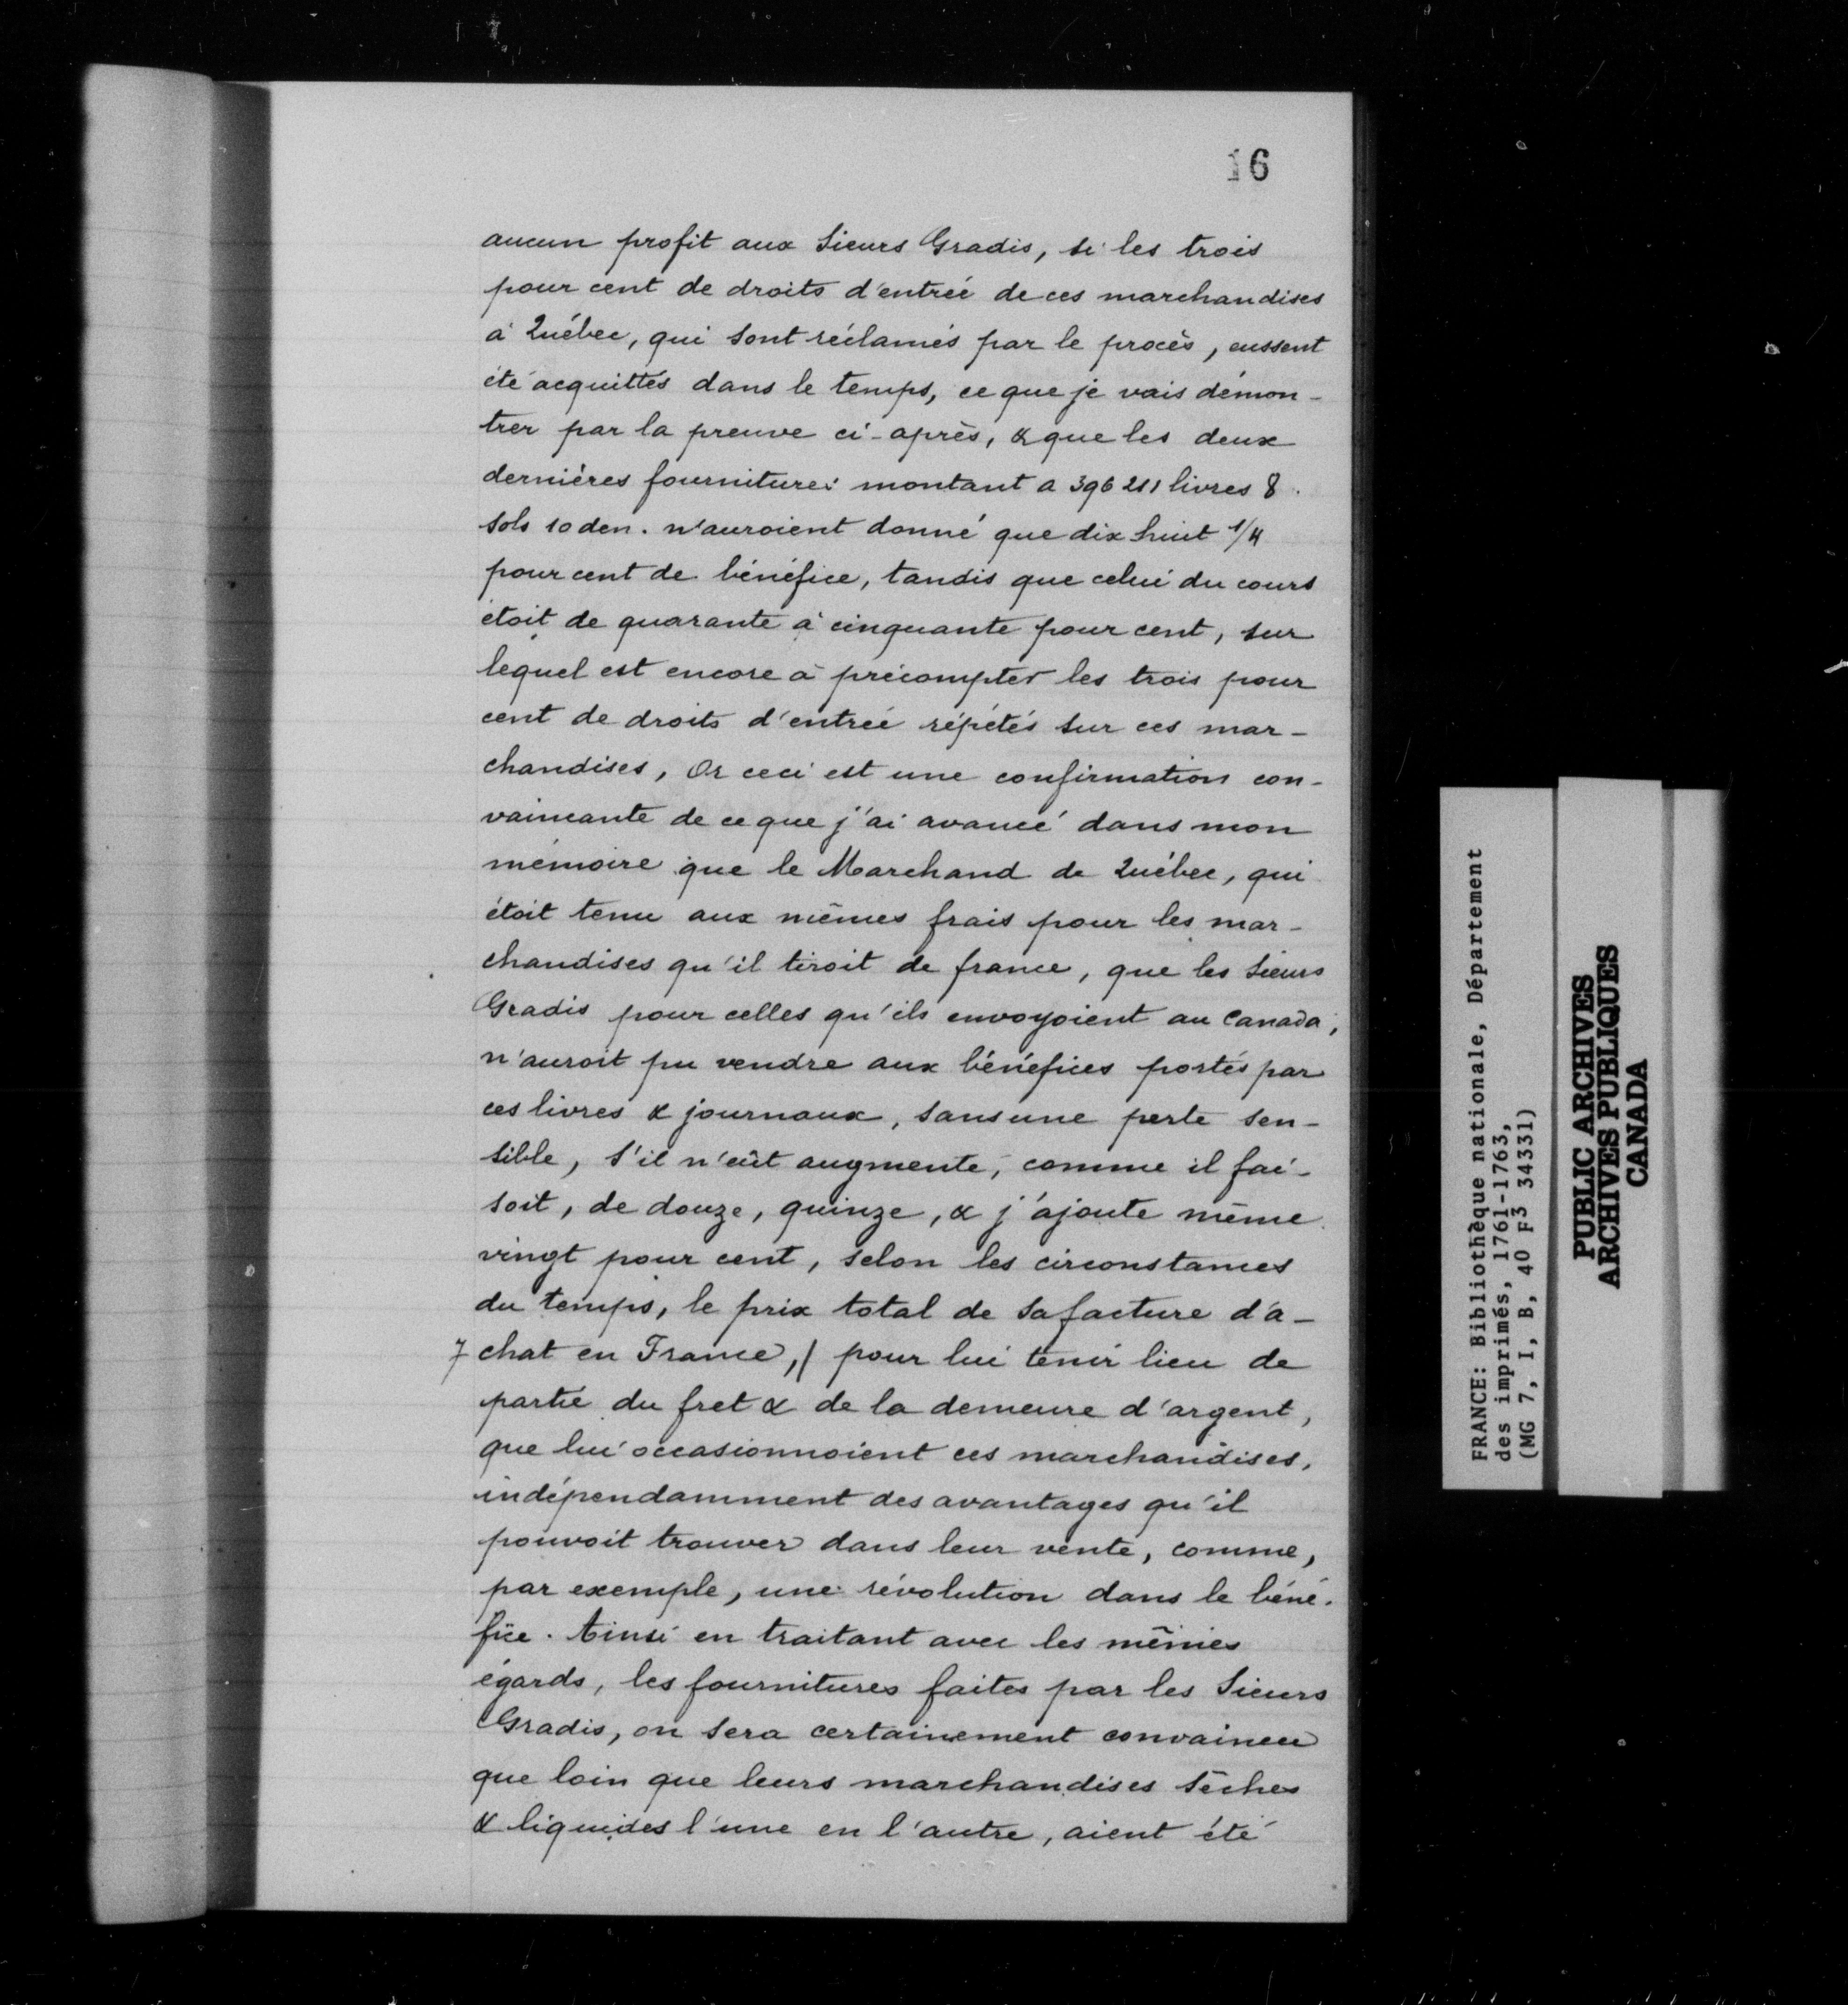 16
aucun profit aux Sieurs Gradis, si les trois
pour cent de droits d'entrée de ces marchandises
à Québec, qui sont réclamés par le procès, eussent
été acquittés dans le temps, ce que je vais démon-
trer par la preuve ci-après, & que les deux
dernières fournitures montant a 396 211 livres 8.
sols 10 den. n'auroient donné que dix huit 1/4
pour cent de bénéfice, tandis que celui du cours
étoit de quarante à cinquante pour cent, sur
lequel est encore à précompter les trois pour
cent de droits d'entrée répétés sur ces mar-
chandises, Or ceci est une confirmation con-
vaincante de ce que j'ai avancé dans mon
mémoire que le Marchand de Québec, qui
étoit tenu aux mêmes frais pour les mar-
chandises qu'il tiroit de france, que les Sieurs
Gradis pour celles qu'ils envoyoient au Canada,
n'auroit pu vendre aux bénéfices portés par
ces livres & journaux, sans une perte sen-
sible, s'il n'eût augmenté, comme il fai-
soit, de douze, quinze, & j'ajoute même
vingt pour cent, selon les circonstances
du temps, le prix total de sa facture d'a-
7 chat en France, // pour lui tenir lieu de
partie du fret & de la demeure d'argent,
que lui occasionnoient ces marchandises,
indépendamment des avantages qu'il
pouvoit trouver dans leur vente, comme,
par exemple, une révolution dans le béné-
fice. Ainsi en traitant avec les mêmes
égards, les fournitures faites par les Sieurs
Gradis, on sera certainement convaincu
que loin que leurs marchandises sèches
& liquides l'une en l'autre, aient été
FRANCE: Bibliothèque nationale, Département
des imprimés, 1761-1763,
(MG 7, I, B, 40 F3 34331)
PUBLIC ARCHIVES
ARCHIVES PUBLIQUES
CANADA